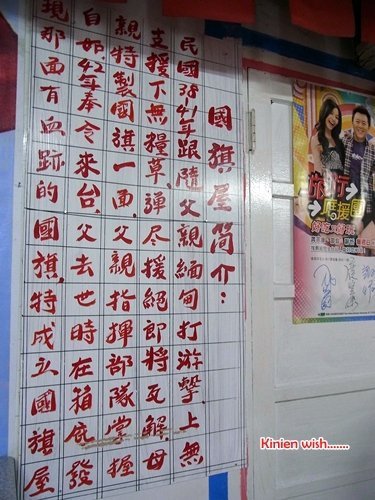 國旗屋簡介：
民國38-41年跟隨父親緬甸打游擊上無
支援下無糧草彈尽援絕即將瓦解母
親特製國旗一面，父親指揮部隊掌握
自如，42年奉令來台，父去世時在箱底發
現那面有血跡的國旗，特成立國旗屋
旅行
應援團
Kinien wish.......